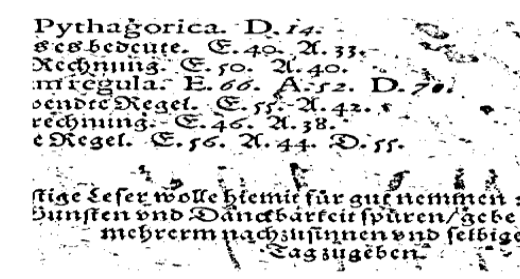 Pythagorica. D. 14.
es bedeute. E. 40. A. 33.
Rechnung. E. 50. A. 40.
regula. E. 66. A. 52. D. 70.
Regel. E. 55. A. 42.
rechnung. E. 46. A. 38.
e Regel. E. 56. A. 44. D. 55.
stige Leser wolle hiemit für gut nemmen
Gunsten vnd Danckbarkeit spüren/ gebe
mehrerm nachzusinnen vnd selbige
Tag zugeben.